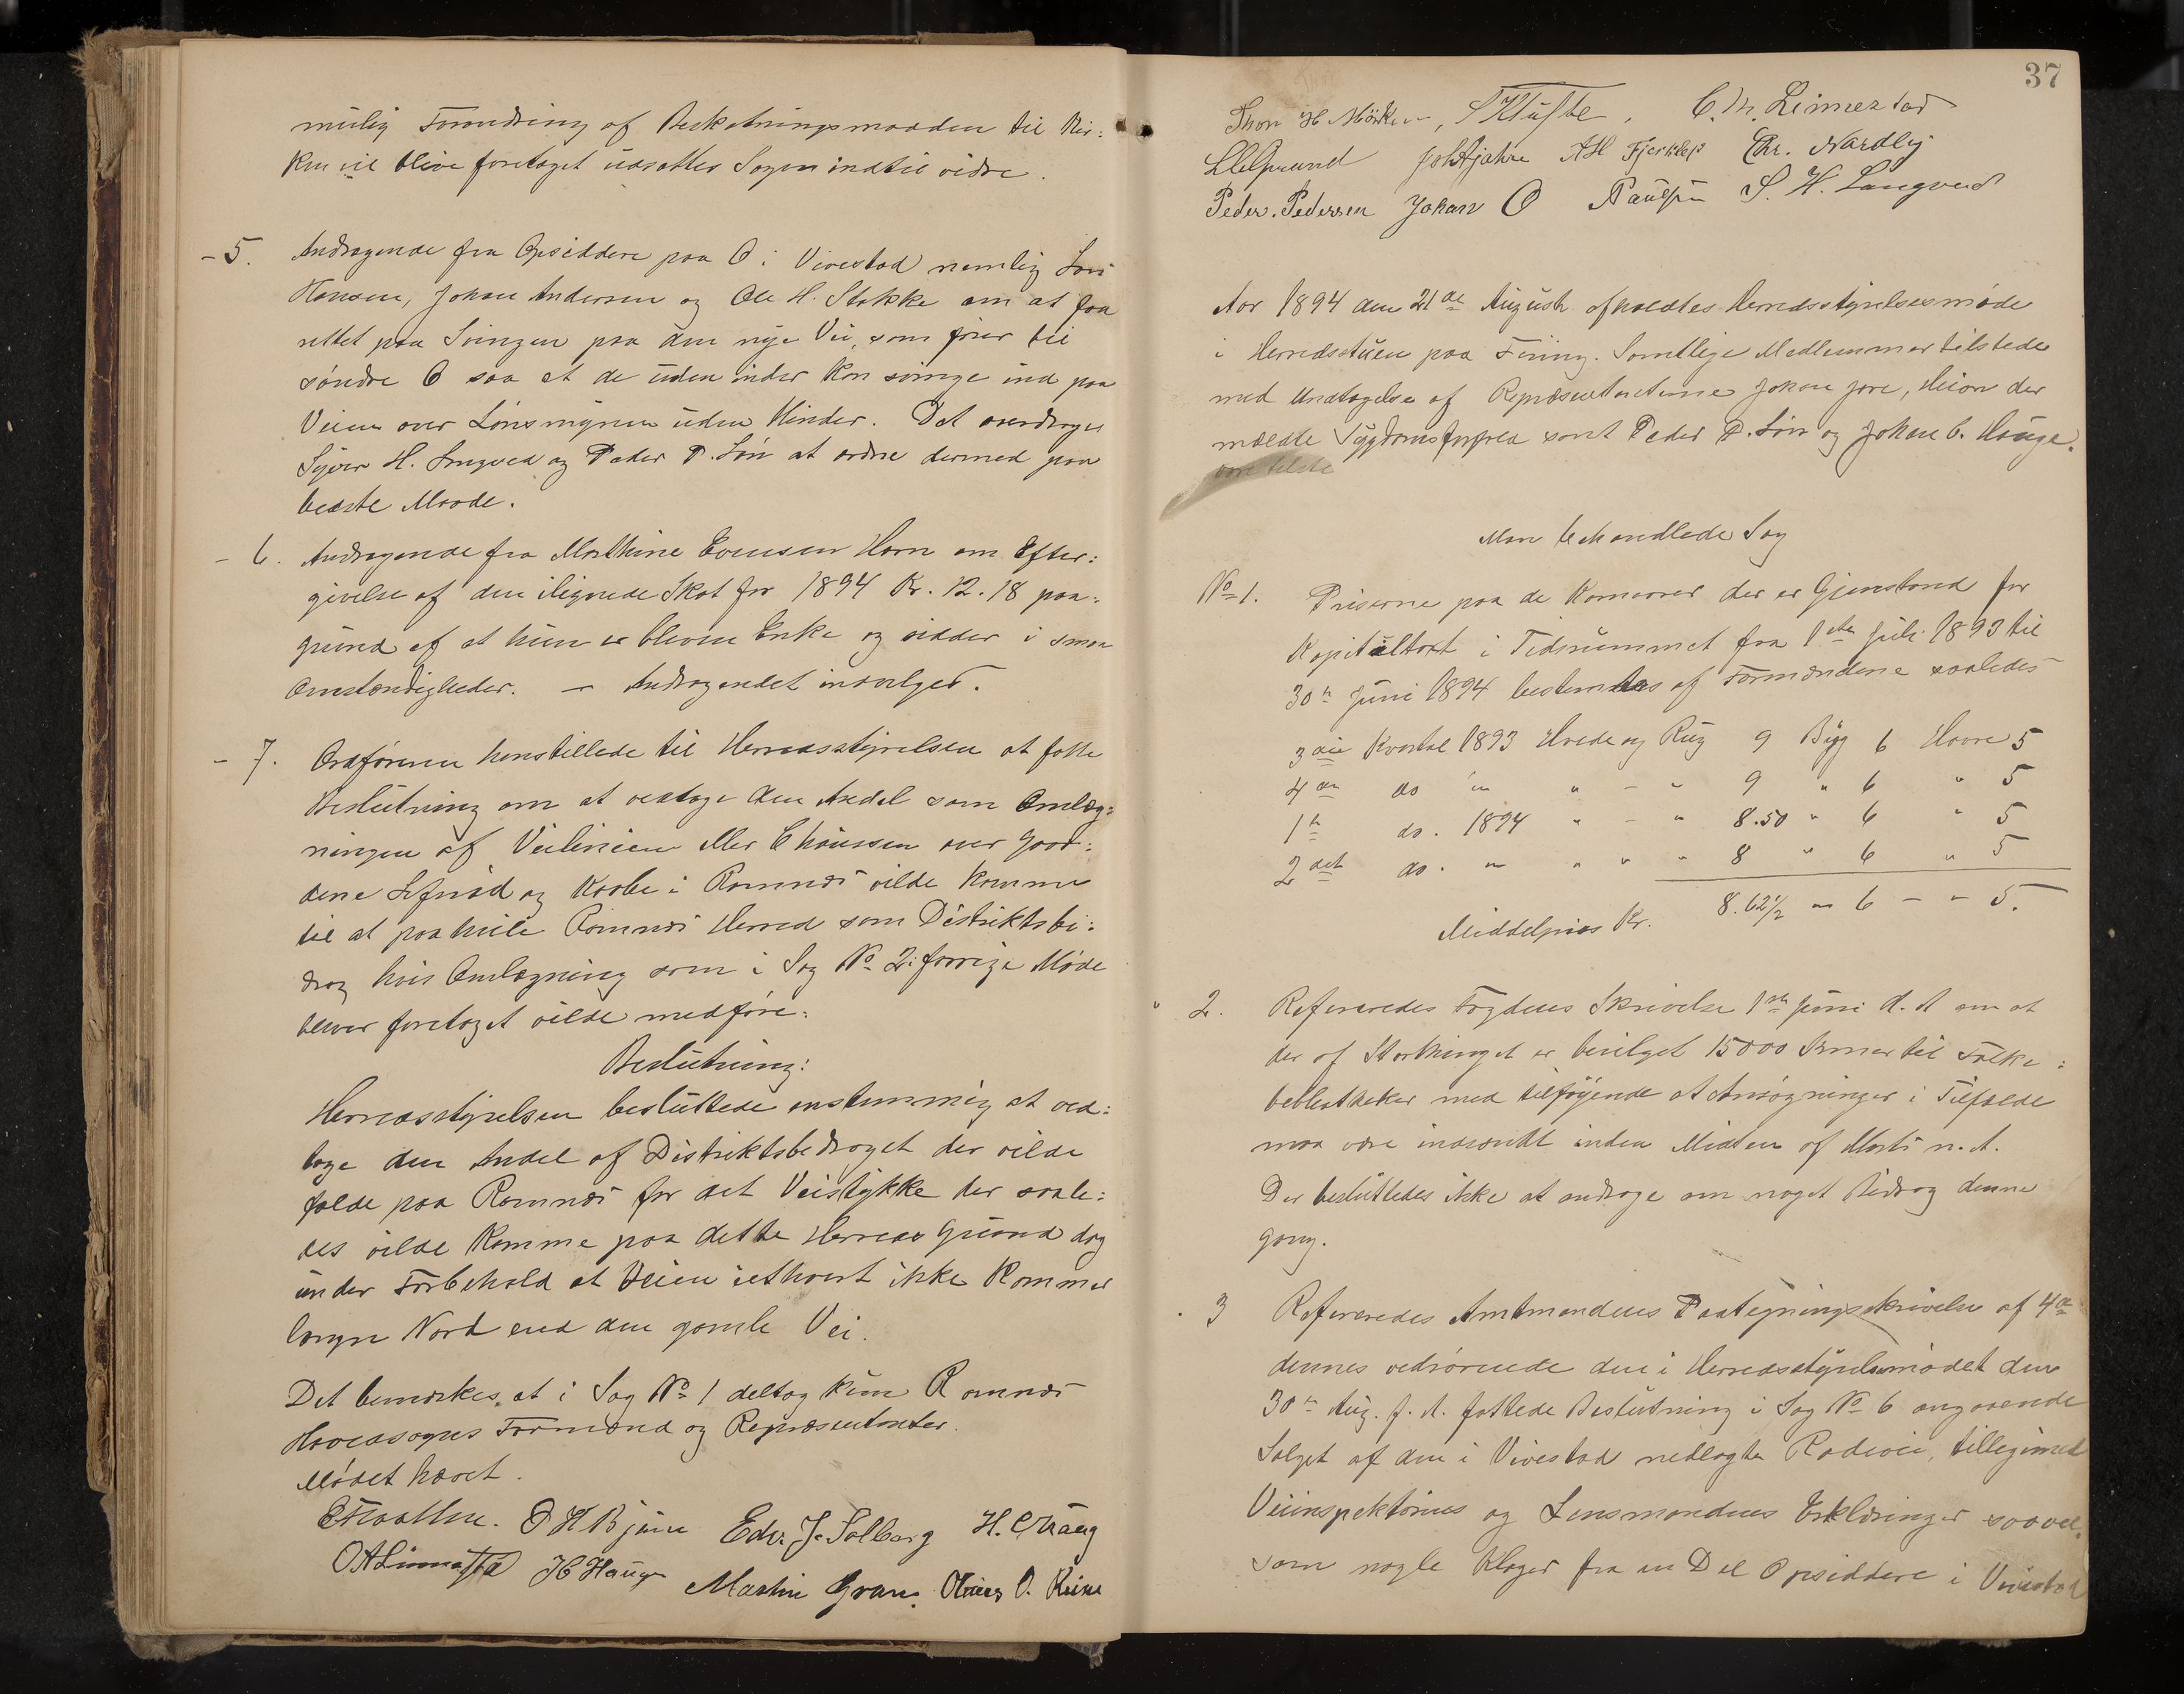 mulig Forandring af Beskatningsmaaden til Kir:
ken vil blive foretaget udsattes Sagen indtil vidre.
- 5. Andragende fra Opsiddere paa O i Vivestad nemlig Lars
Hansen, Johan Andersen og Ole H. Stokke om at faa
rettet paa Svingen paa den nye Vei, som fører til
søndre O saa at de uden inder kan svinge ind paa
Veien over Lønsmyren uden Hinder. Det overdroges
Sjøver H. Langved og Peder P. Løn at ordne dermed paa
bedste Maade.
- 6. Andragende fra Mathine Evensen Horn om Efter:
givelse af den ilignede Skat for 1894 Kr. 12.18 paa-
grund af at hun er bleven Enke og sidder i smaa
Omstændigheder. — Andragendet invilges.
- 7. Ordføreren henstillede til Herredsstyrelsen at fatte
Beslutning om at vedtage den Andel som Omlæg:
ningen af Veilinien eller Chausseen over Gaar:
dene Lefsrød og Kaabe i Ramnes vilde komme
til at paahvile Ramnes Herred som Distriktsbi:
drag hvis Omlægning som i Sag No 2 i forrige Møde
bliver foretaget vilde medføre:
Beslutning:
Herredsstyrelsen besluttede enstemmig at ved:
tage den Andel af Distriktsbedraget der vilde
falde paa Ramnes for det Veistykke der saale:
des vilde komme paa dette Herreds Grund dog
under Forbehold at Veien iethvert ikke kommer
længer Nord end den gamle Vei.
Det bemærkes, at i Sag No 1 deltog kun Ramnes
Hovedsogns Formænd og Repræsentanter.
Mødet hævet.
O H Bjune Edv. J. Solberg H. C. Haug
O A Linnestad H Hauge Martin Gran. O. Reine
37
Thor H Mörken, S Klufte, C. M. Linnestad
A H Fjerkleps Chr. Nordlig
Peder. Pedersen Johan O Paulsen S. H. Langved
Aar 1894 den 21de August afholdtes Herredsstyrelsesmøde
i Herredsstuen paa Fōning. Samtlige Medlemmer tilstede
med Undtagelse af Repræsentanterne Johan Jare, hvion der
mældte Sygdomsforfald samt Peder P. Løn og Johan C. Hauge.
Man behandlede Sag
No 1. Priserne paa de Kornvarer der er Gjenstand for
Kapitaltaxt i Tidsrummet fra 1ste Juli 1893 til
30te Juni 1894 bestemtes af Formændene saaledes
3die Kvartal 1893 Hvede og Rug 9 Byg 6 Havre 5
4de do " " - " 9 " 6 " 5
1ste do. 1894 " - " 8.50 " 6 " 5
2det do. " " " " 8 " 6 " 5
Middelpris Kr. 8.62½ " 6 - " 5.
" 2. Refereredes Fogdens Skrivelse 1ste Juni d.A om at
der af Storthinget er bevilget 15000 Kroner til Folke:
bebliotheker med tilføyende at Ansøgninger i Tilfælde
maa være indsendt inden Midten af Marts n.A.
Der besluttedes ikke at andrage om noget Bidrag denne
gang.
" 3 Refereredes Amtmandens Paategningsskrivelse af 4de
dennes vedrørende den i Herredsstyrelsesmødet den
30te Aug. f.A. fattede Beslutning i Sag No 6 angaaende
Salget af den i Vivestad nedlagte Rodevei, tilligemed
Veiinspektørens og Lensmandens Erklæringer saavel
som nogle Klager fra en Del Opsiddere i Vivestad